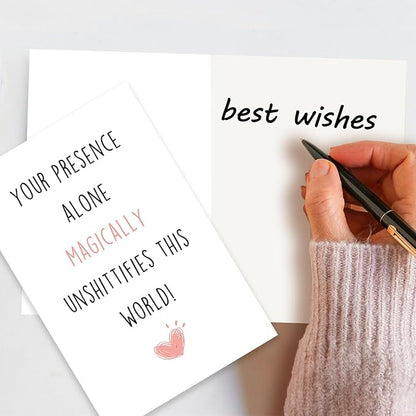 YOUR PRESENCE
ALONE
MAGICALLY
UNSHITTIFIES THIS
WORLD!
best wishes